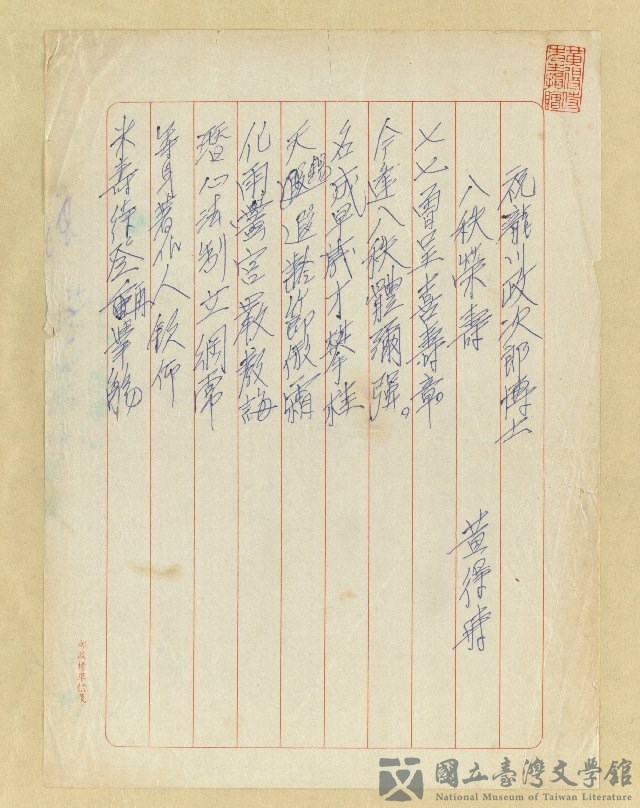 祝龍川政次郎博士
八秩榮壽
黃得時
七七曾呈喜壽章。
今達八秩體彌強。
名成早歲才攀桂
天賜遐齡節傲霜
化雨黌宮嚴教誨
潛心法制立綱常
等身著作人欽仰
米壽再舉觴
郵政標準信箋
國立臺灣文學館
National Museum of Taiwan Literature